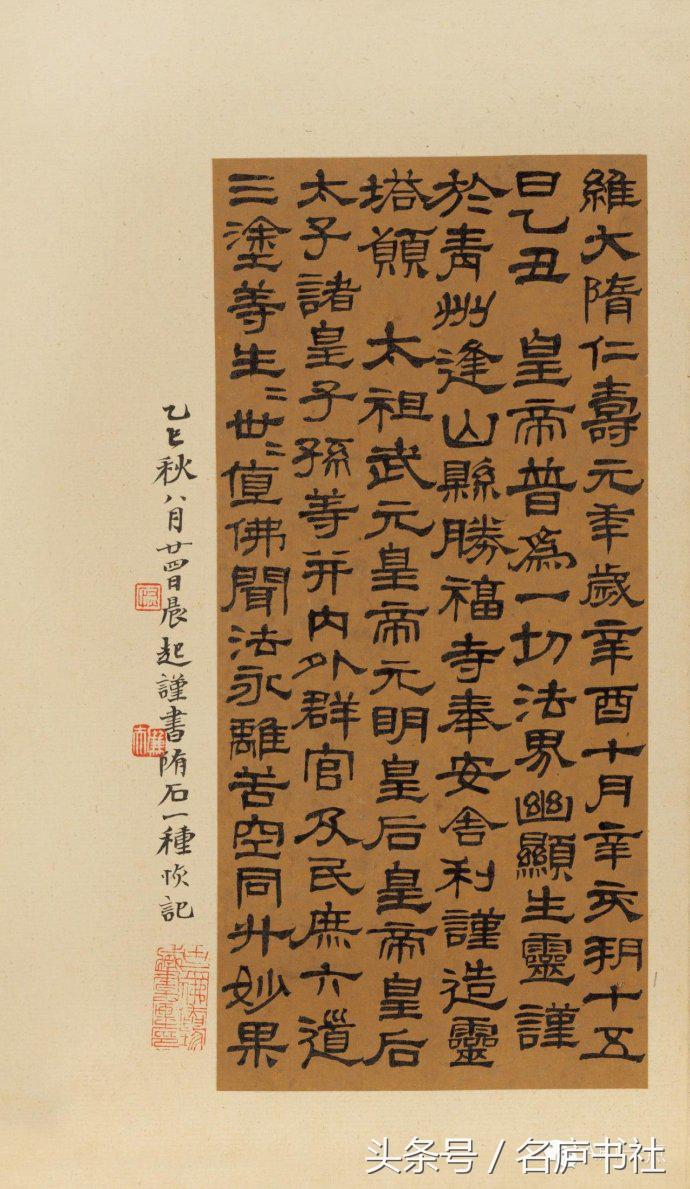 維大隋仁壽元年歲辛酉十月辛亥朔十五
日乙丑　皇帝普為一切法界幽顯生靈謹
於青州逢山縣勝福寺奉安舍利謹造靈
塔願　太祖武元皇帝元明皇后皇帝皇后
太子諸皇子孫等并内外群官及民庶六道
三塗等生〻世〻值佛聞法永離苦空同升妙果
乙巳秋八月廿四日晨起謹書隋石一種 記
头条号 / 名庐书社